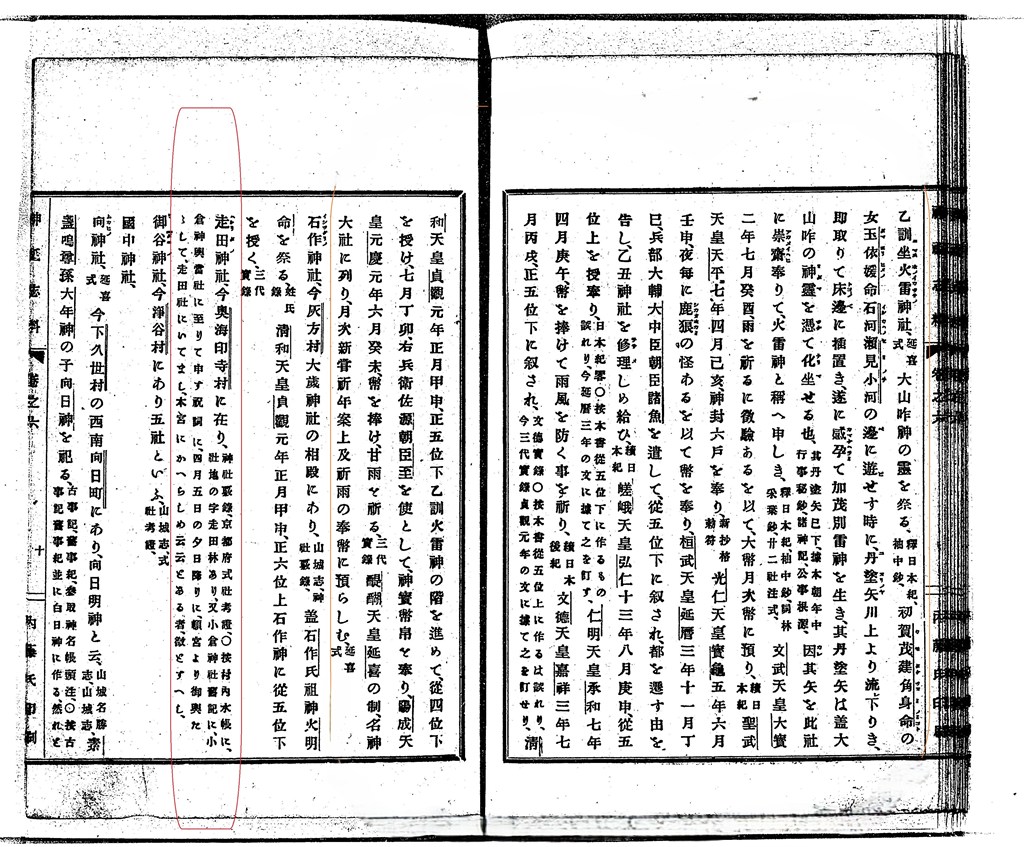 乙訓坐火雷神社、延喜式 大山咋神の靈を祭る、釋日本紀、袖中鈔、初賀茂建角身命の
女玉依媛命石河瀬見小河の邊に遊せす時に、丹塗矢川上より流下りき、
即取りて床邊に插置き、遂に感孕て加茂別雷神を生き、其丹塗矢は盖大
山咋の神靈を憑て化坐せる也、其丹塗矢已下、據本朝年中行事秘鈔、諸神記、公事根源、因其矢を此社
に崇齋奉りて、火雷神と稱へ申しき、釋日本紀、袖中鈔、詞林采葉鈔、廿二社注式、文武天皇大寶
二年七月癸酉、雨を祈るに徴驗あるを以て、大幣月次幣に預り、續日本紀 聖武
天皇天平七年四月己亥、神封六戸を奉り、新抄格勅符 光仁天皇寶龜五年六月
壬申、夜毎に鹿狼の怪あるを以て幣を奉り、桓武天皇延曆三年十一月丁
巳、兵部大輔大中臣朝臣諸魚を遣して、從五位下に叙され、都を遷す由を
告し、乙丑神社を修理しめ給ひ、續日本紀 嵯峨天皇弘仁十三年八月庚申、從五
位上を授奉り、日本紀畧〇按本書從五位下に作るもの誤れり、今延曆三年の文に據て之を訂す、仁明天皇承和七年
四月庚午、幣を捧けて雨風を防く事を祈り、續日本後紀 文德天皇嘉祥三年七
月丙戌、正五位下に叙され、文德實錄〇按本書從五位上に作るは誤れり、今三代實錄貞觀元年の文に據て之を訂せり、清
和天皇貞觀元年正月甲申、正五位下乙訓火雷神の階を進めて、從四位下
を授け、七月丁卯、右兵衛佐源朝臣至を使として、神寶幣帛を奉り、陽成天
皇元慶元年六月癸未、幣を捧け、甘雨を祈る、三代實錄 醍醐天皇延喜の制、名神
大社に列り、月次新嘗祈年案上及祈雨の奉幣に預らしむ、延喜式
石作神社、今灰方村大歲神社の相殿にあり、山城志、神社覈錄、盖石作氏祖神火明
命を祭る、姓氏錄 清和天皇貞觀元年正月甲申、正六位上石作神に從五位下
を授く、三代實錄
走田神社、今奧海印寺村に在り、神社覈錄、京都府式社考證、〇按村內水帳に、社地の字走田林あり、又小倉神社舊記に、小
倉神輿當社に至りて申す祝詞に、四月五日の夕日降りに頓宮より御輿た
して、走田社にいてまし、本宮にかへらしめ云云とある者、徵とすへし、
御谷神社、今淨谷村にあり五社といふ、山城志、式社考證、
國中神社、
向神社、延喜式 今下久世村の西南向日町にあり、向日明神と云、山城名勝志、山城志、素
盞嗚尊孫大年神の子向日神を祀る、古事記、舊事紀、參取神名帳頭注、〇按古事記舊事紀並に白日神に作る然れと